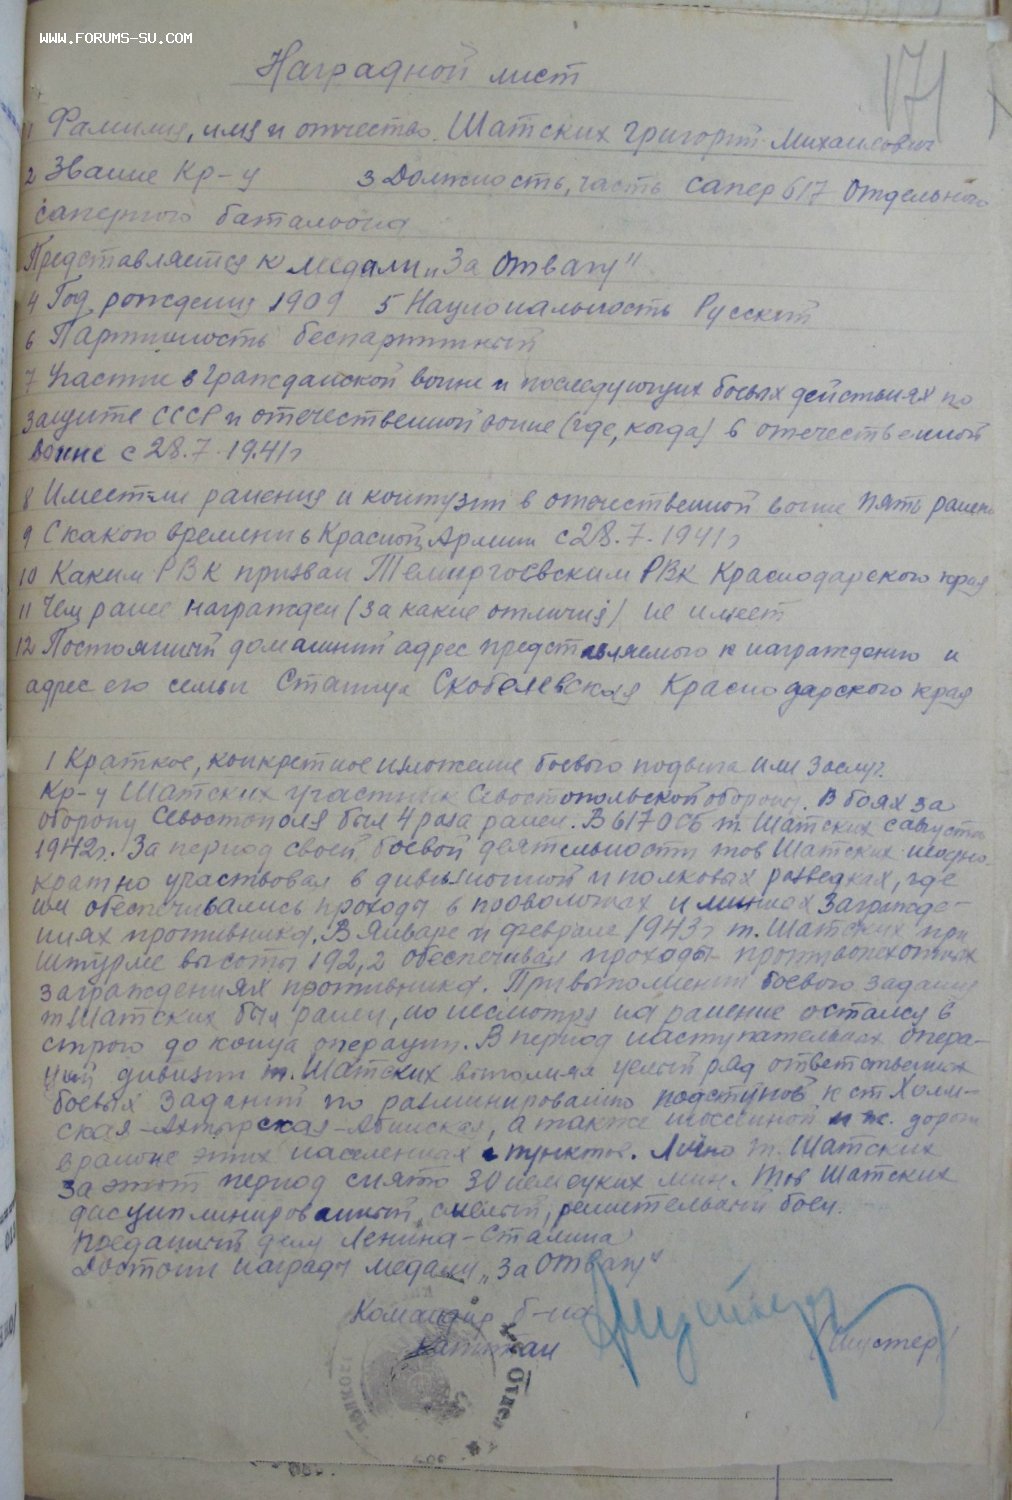 WWW.FORUMS-SU.COM
171
Наградной лист
1 Фамилия, имя и отчество Шатских Григорий Михайлович
2 Звание Кр-ц 3 Должность, часть сапер 617 Отдельного
саперного баталиона
Представляется к медали „За Отвагу"
4 Год рождения 1909 5 Национальность Русский
6 Партийность беспартийный
7 Участие в Гражданской войне и последующих боевых действиях по
защите СССР и отечественной войне (где, когда) в отечественной
войне с 28.7.1941г
8 Имеет ли ранения и контузии в отечественной войне пять ранен
9 С какого времени в Красной Армии с 28.7.1941г
10 Каким РВК призван Темиргоевским РВК Краснодарского края
11 Чем ранее награжден (за какие отличия) не имеет
12 Постоянный домашний адрес представляемого к награждению и
адрес его семьи Станица Скобелевская Краснодарского края
1 Краткое, конкретное изложение боевого подвига или заслуг.
Кр-ц Шатских участник Севостопольской обороны. В боях за
оборону Севостополя был 4 раза ранен. В 617 ОСБ т. Шатских с августа
1942г. За период своей боевой деятельности тов Шатских неодно-
кратно участвовал в дивизионной и полковых разведках, где
им обеспечивались проходы в проволочных и минных загражде-
ниях противника. В Январе и феврале 1943г т. Шатских при
штурме высоты 192,2 обеспечивал проходы противопехотных
заграждениях противника. При выполнении боевого задания
т. Шатских был ранен, но несмотря на ранение остался в
строю до конца операции. В период наступательных опера-
ций дивизии т. Шатских выполнял целый ряд ответственных
боевых заданий по разминированию подступов к ст Холм-
ская-Ахтырская-Абинская, а также шоссейной и ж. дороги
в районе этих населенных пунктов. Лично т. Шатских
за этот период снято 30 немецких мин. Тов Шатских
дисциплинированный, смелый, решительный боец.
Преданный делу Ленина-Сталина
Достоин награды медали „За Отвагу"
Командир б-на
капитан (Шустер)
Отдел